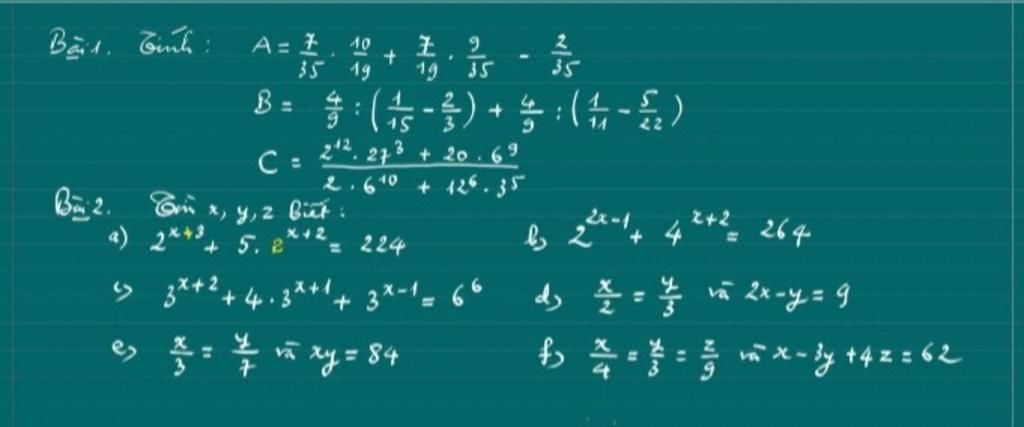 Bài 1. Tính: A = 7/35 . 10/19 + 7/19 . 9/35 - 2/35
B = 4/9 : (1/15 - 2/3) + 4/9 : (1/11 - 5/22)
C = (2^12 . 27^3 + 20 . 6^9) / (2 . 6^10 + 12^6 . 3^5)
Bài 2. Tìm x, y, z biết:
a) 2^(x+3) + 5. 2^(x+2) = 224 b) 2^(2x-1) + 4^(x+2) = 264
c) 3^(x+2) + 4 . 3^(x+1) + 3^(x-1) = 6^6 d) x/2 = y/3 và 2x - y = 9
e) x/3 = y/7 và xy = 84 f) x/4 = y/3 = z/9 và x - 3y + 4z = 62